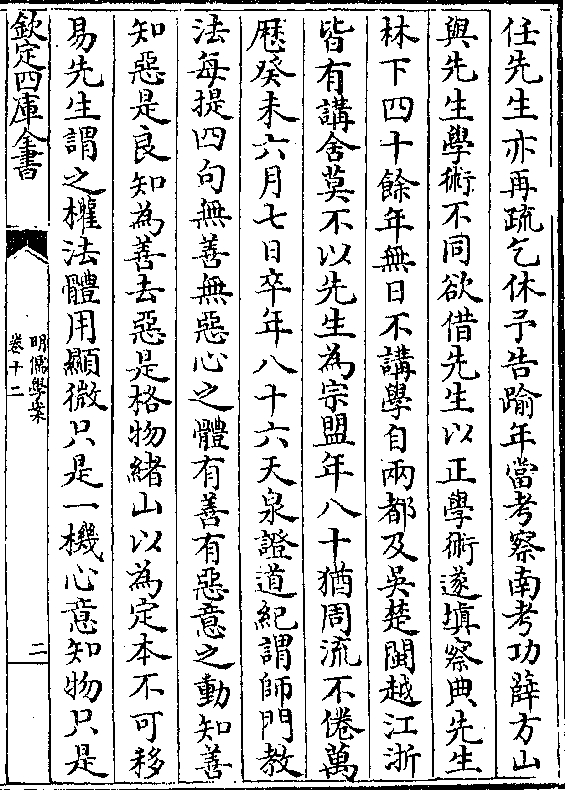 任先生亦再疏乞休予告踰年當考察南考功薛方山
與先生學術不同欲借先生以正學術遂填察典先生
林下四十餘年無日不講學自兩都及吳楚閩越江浙
皆有講舍莫不以先生為宗盟年八十猶周流不倦萬
厯癸未六月七日卒年八十六天泉證道紀謂師門教
法每提四句無善無惡心之體有善有惡意之動知善
知惡是良知為善去惡是格物緒山以為定本不可移
易先生謂之權法體用顯微只是一機心意知物只是
欽定四庫全書
明儒學案
卷十二
二